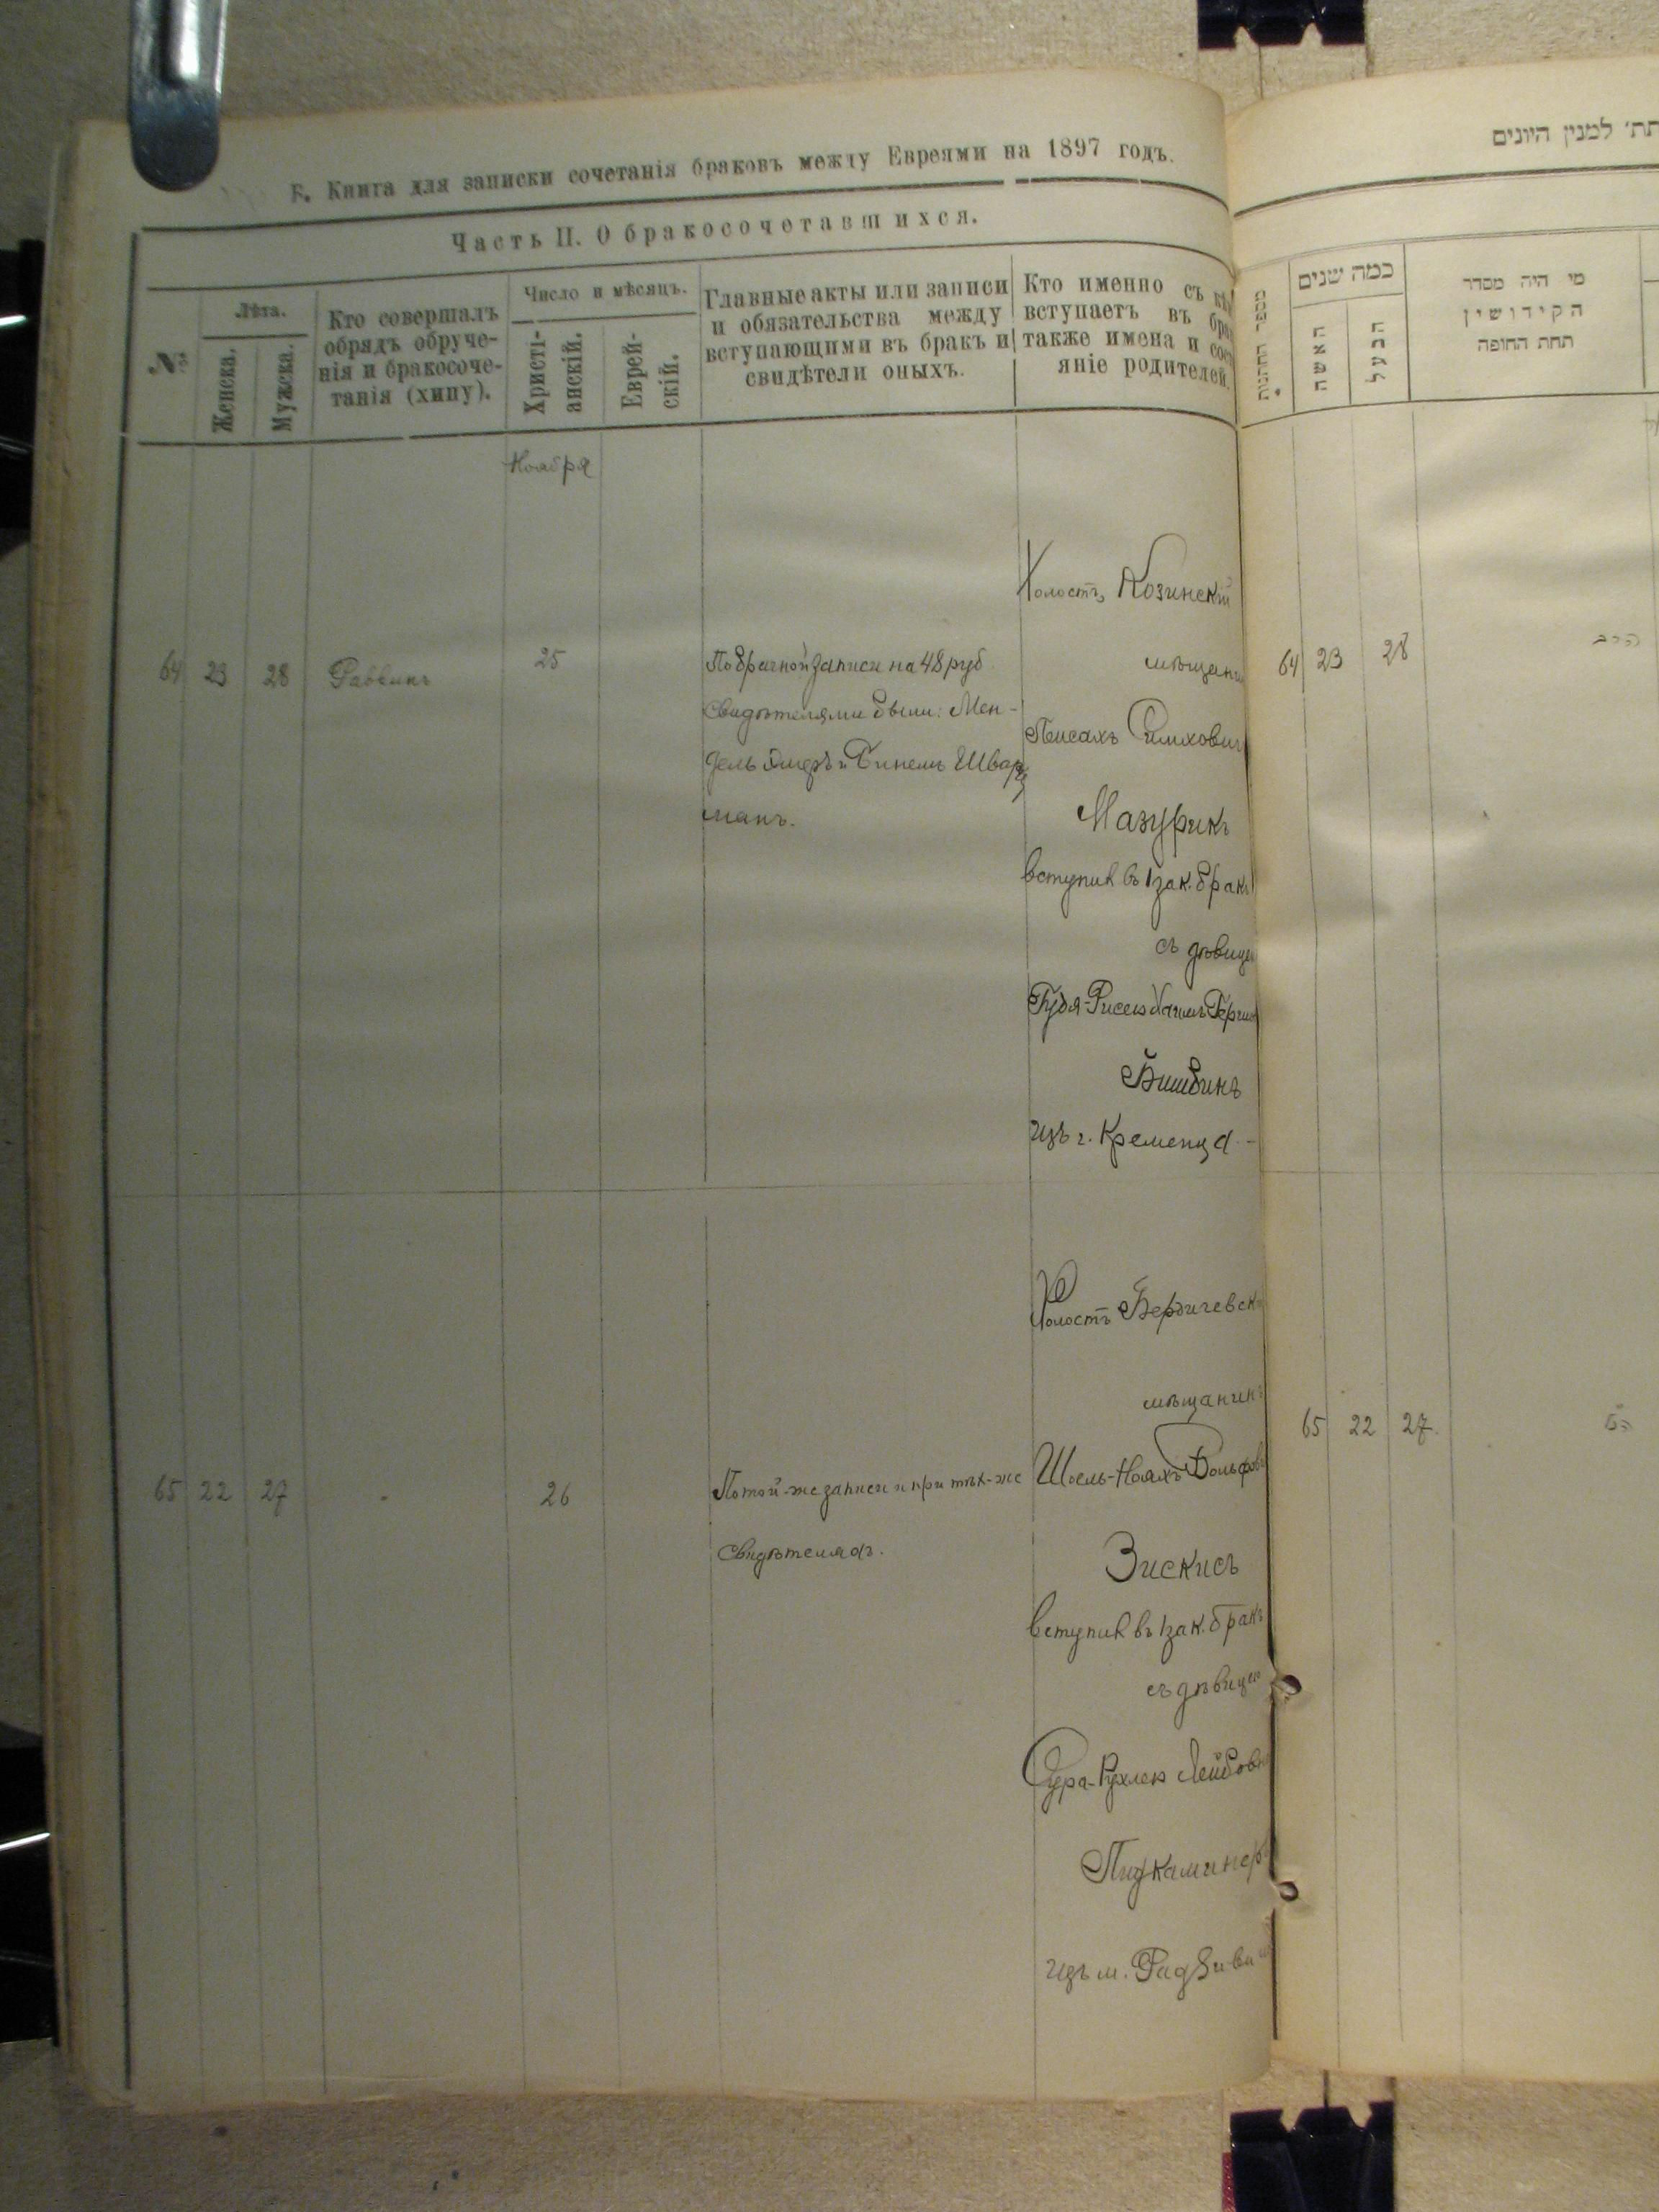 Б. Книга для записки сочетанія браковъ между Евреями на 1897 годъ.
Часть II. О бракосочетавшихся.
№
Лѣта.
Женска.
Мужска.
Кто совершалъ
обрядъ обруче-
нія и бракосоче-
танія (хипу).
Число и мѣсяцъ.
Христі-
анскій.
Еврей-
скій.
Главные акты или записи
и обязательства между
вступающими въ бракъ и
свидѣтели оныхъ.
Кто именно съ
вступаетъ въ
также имена и
яніе родителей.
Ноября
64 23 28 Раввинъ 25
По брачной записи на 48 руб
Свидѣтелями были: Мен-
дель и Шварц
манъ.
Холостъ, Козинскій
мѣщанин
Пейсахъ Симхович
Мазурикъ
вступил въ 1 зак. бракъ
съ дѣвицею
из г. Кременца -
65 22 27 26
По той-же записи и при тѣх-же
Свидѣтеляхъ.
Холостъ Бердичевск
мѣщанинъ
Шоель-Ноахъ Вольфов
Зискисъ
вступил въ 1 зак. бракъ
съ дѣвицею
Сура-Рухлею Лейбов
Пизкаминеръ
изъ м. Радзиви
תת׳ למנין היונים
מספר החתונות
כמה שנים
האשה
הבעל
מי היה מסדר
הקידושין
תחת החופה
64 23 28 הרב
65 22 27